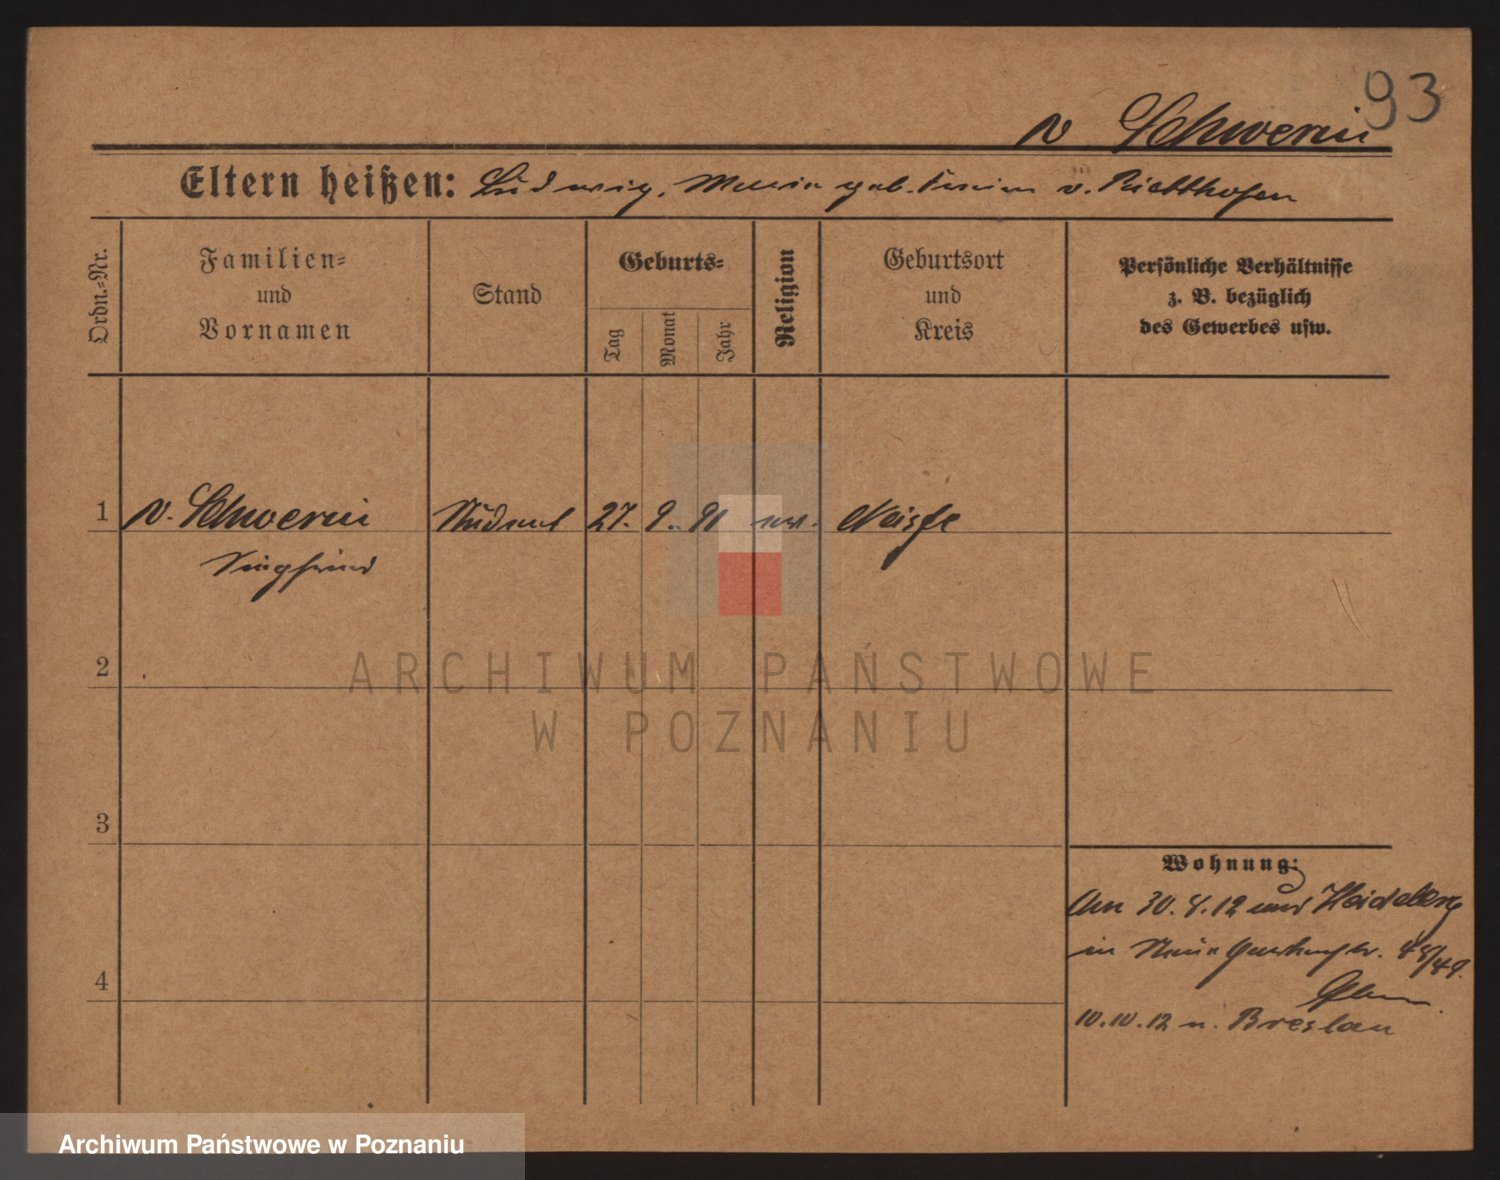 93
v. Schwerin
Eltern heißen: Ludwig, Maria geb. Freiin v. Richthofen
Ordn.-Nr.
Familien-
und
Vornamen
Stand
Geburts-
Tag
Monat
Jahr
Religion
Geburtsort
und
Kreis
Persönliche Verhältnisse
z. B. bezüglich
des Gewerbes usw.
1 v. Schwerin Student 27. 9. 91 ev. Neisse
Siegfried
2
ARCHIWUM PAŃSTWOWE
W POZNANIU
3
Wohnung:
Am 30. 4. 12 aus Heidelberg
in Neue Gartenstr. 48/49.
4
10.10.12 n. Breslau
Archiwum Państwowe w Poznaniu